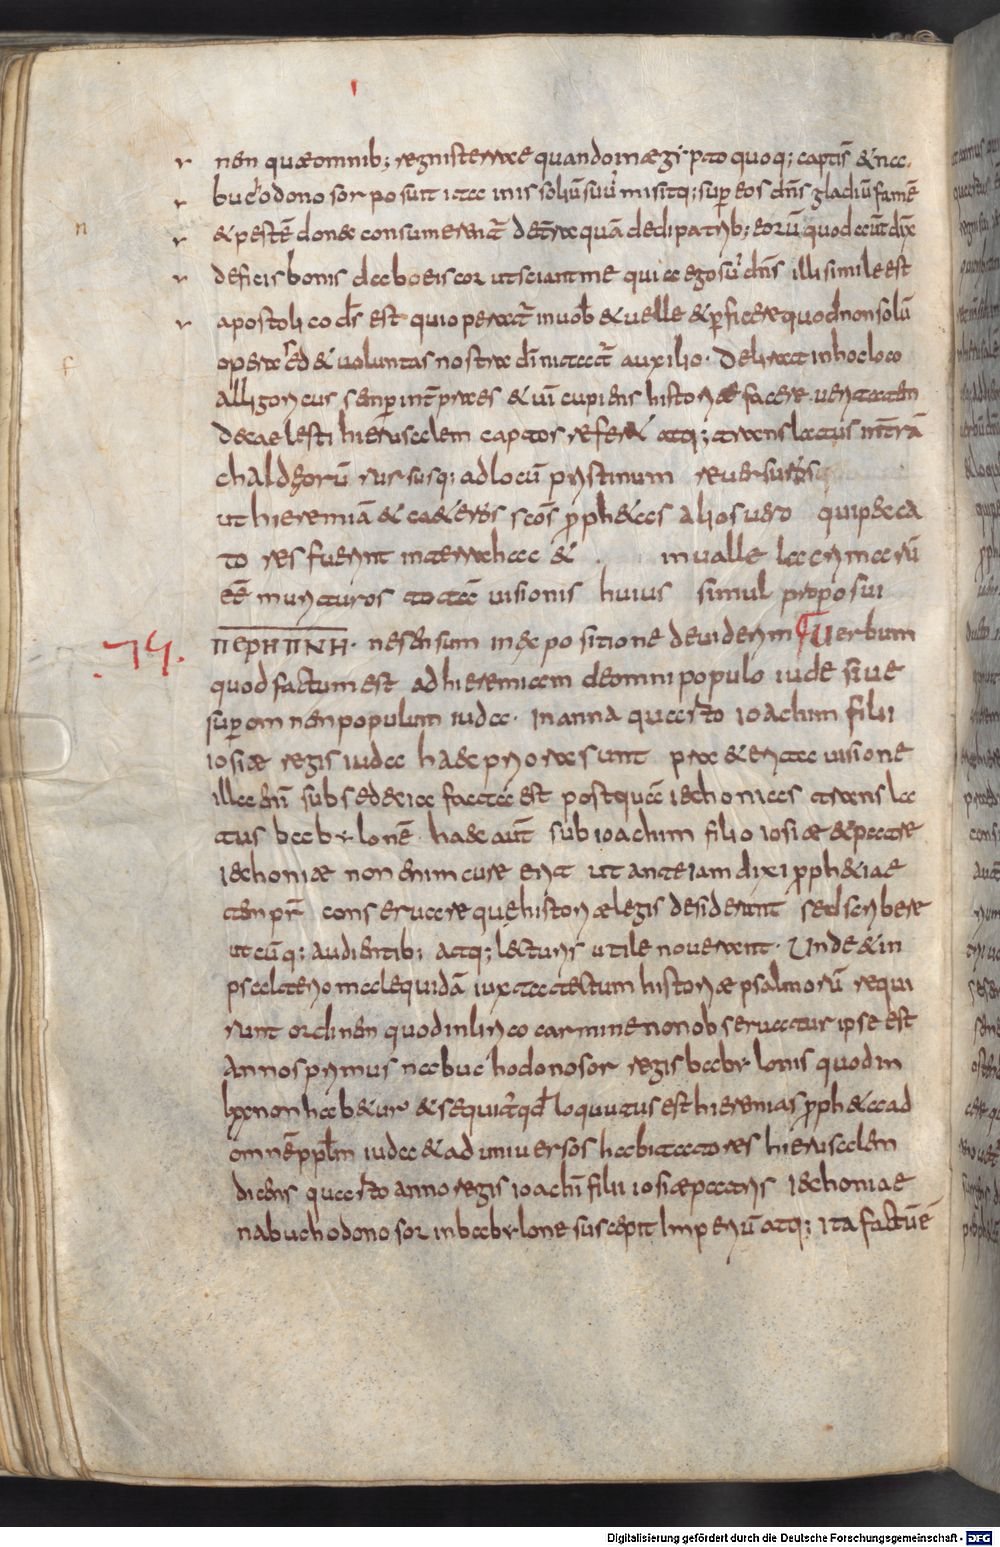 nen quæ omnib; regnis terrae quando in ægipto quoq; captis & nabuc
buchodonosor posuit ita in is solium suũ misitq; sup eos dñs gladiũ famẽ
& pestẽ donec consumerent̃ de terra quã dedi patrib; eorũ quod aut̃ dix̃
de ficis bonis dabo eis cor ut sciant me quia ego sũ dñs illi simile est
apostoli co ds̃ est qui operat̃ in uob & uelle & pficere quod non solũ
opera sed & uoluntas nostra dñi nitat̃ auxilio. Delirat in hoc loco
alligoricus semp int̃pres & uĩ cupiens historiæ facere ueritaten
de caelesti hierusalem captos referi atq; translatus in trã
chaldeorũ rursusq; ad locũ pristinum reuersuros
ut hieremiã & cadĕros scos proph&as alios uero qui peca
tores fuerint in terra haec & . in ualle lacrimarũ
eẽ mansuros totã visionis huius simul proposui
ΠΕΡΗΠΝΗ. ne sensum in expositione deuiderim Uerbum
74.
quod factum est ad hieremiam de omni populo iude siue
sup omnen populum iuda. in anna quarto ioachim filii
iosiæ regis iuda haec priora sunt praeterita uisione
illa enĩ sub sedexia facta est postquã iechonias transla
tus babylonẽ haec aut̃ sub ioachim filio iosiæ & patre
iechoniæ non enim cure erit ut ante iam dixi proph&iae
tenpr̃ conseruare que historiæ legis desiderunt sed scribere
ut cũq; audientib; atq; lecturis utile nouerant. Unde & in
psalterio male quidã iuxta textum historiæ psalmorũ requi
runt ordinen quod in lirico carmine non obseruatur ipse est
annos primus nabuchodonosor regis babylonis quod in
lxx non hab&ur & sequit̃ qd̃ loquutus est hieremias proph&a ad
omnẽ pplm iuda & ad uniuersos habitatores hierusalem
dicens quarto anno regis ioachĩ filii iosiæ patris iechoniae
nabuchodonosor in babylone suscepit imperiũ atq; ita factũ ẽ
Digitalisierung gefördert durch die Deutsche Forschungsgemeinschaft - DFG